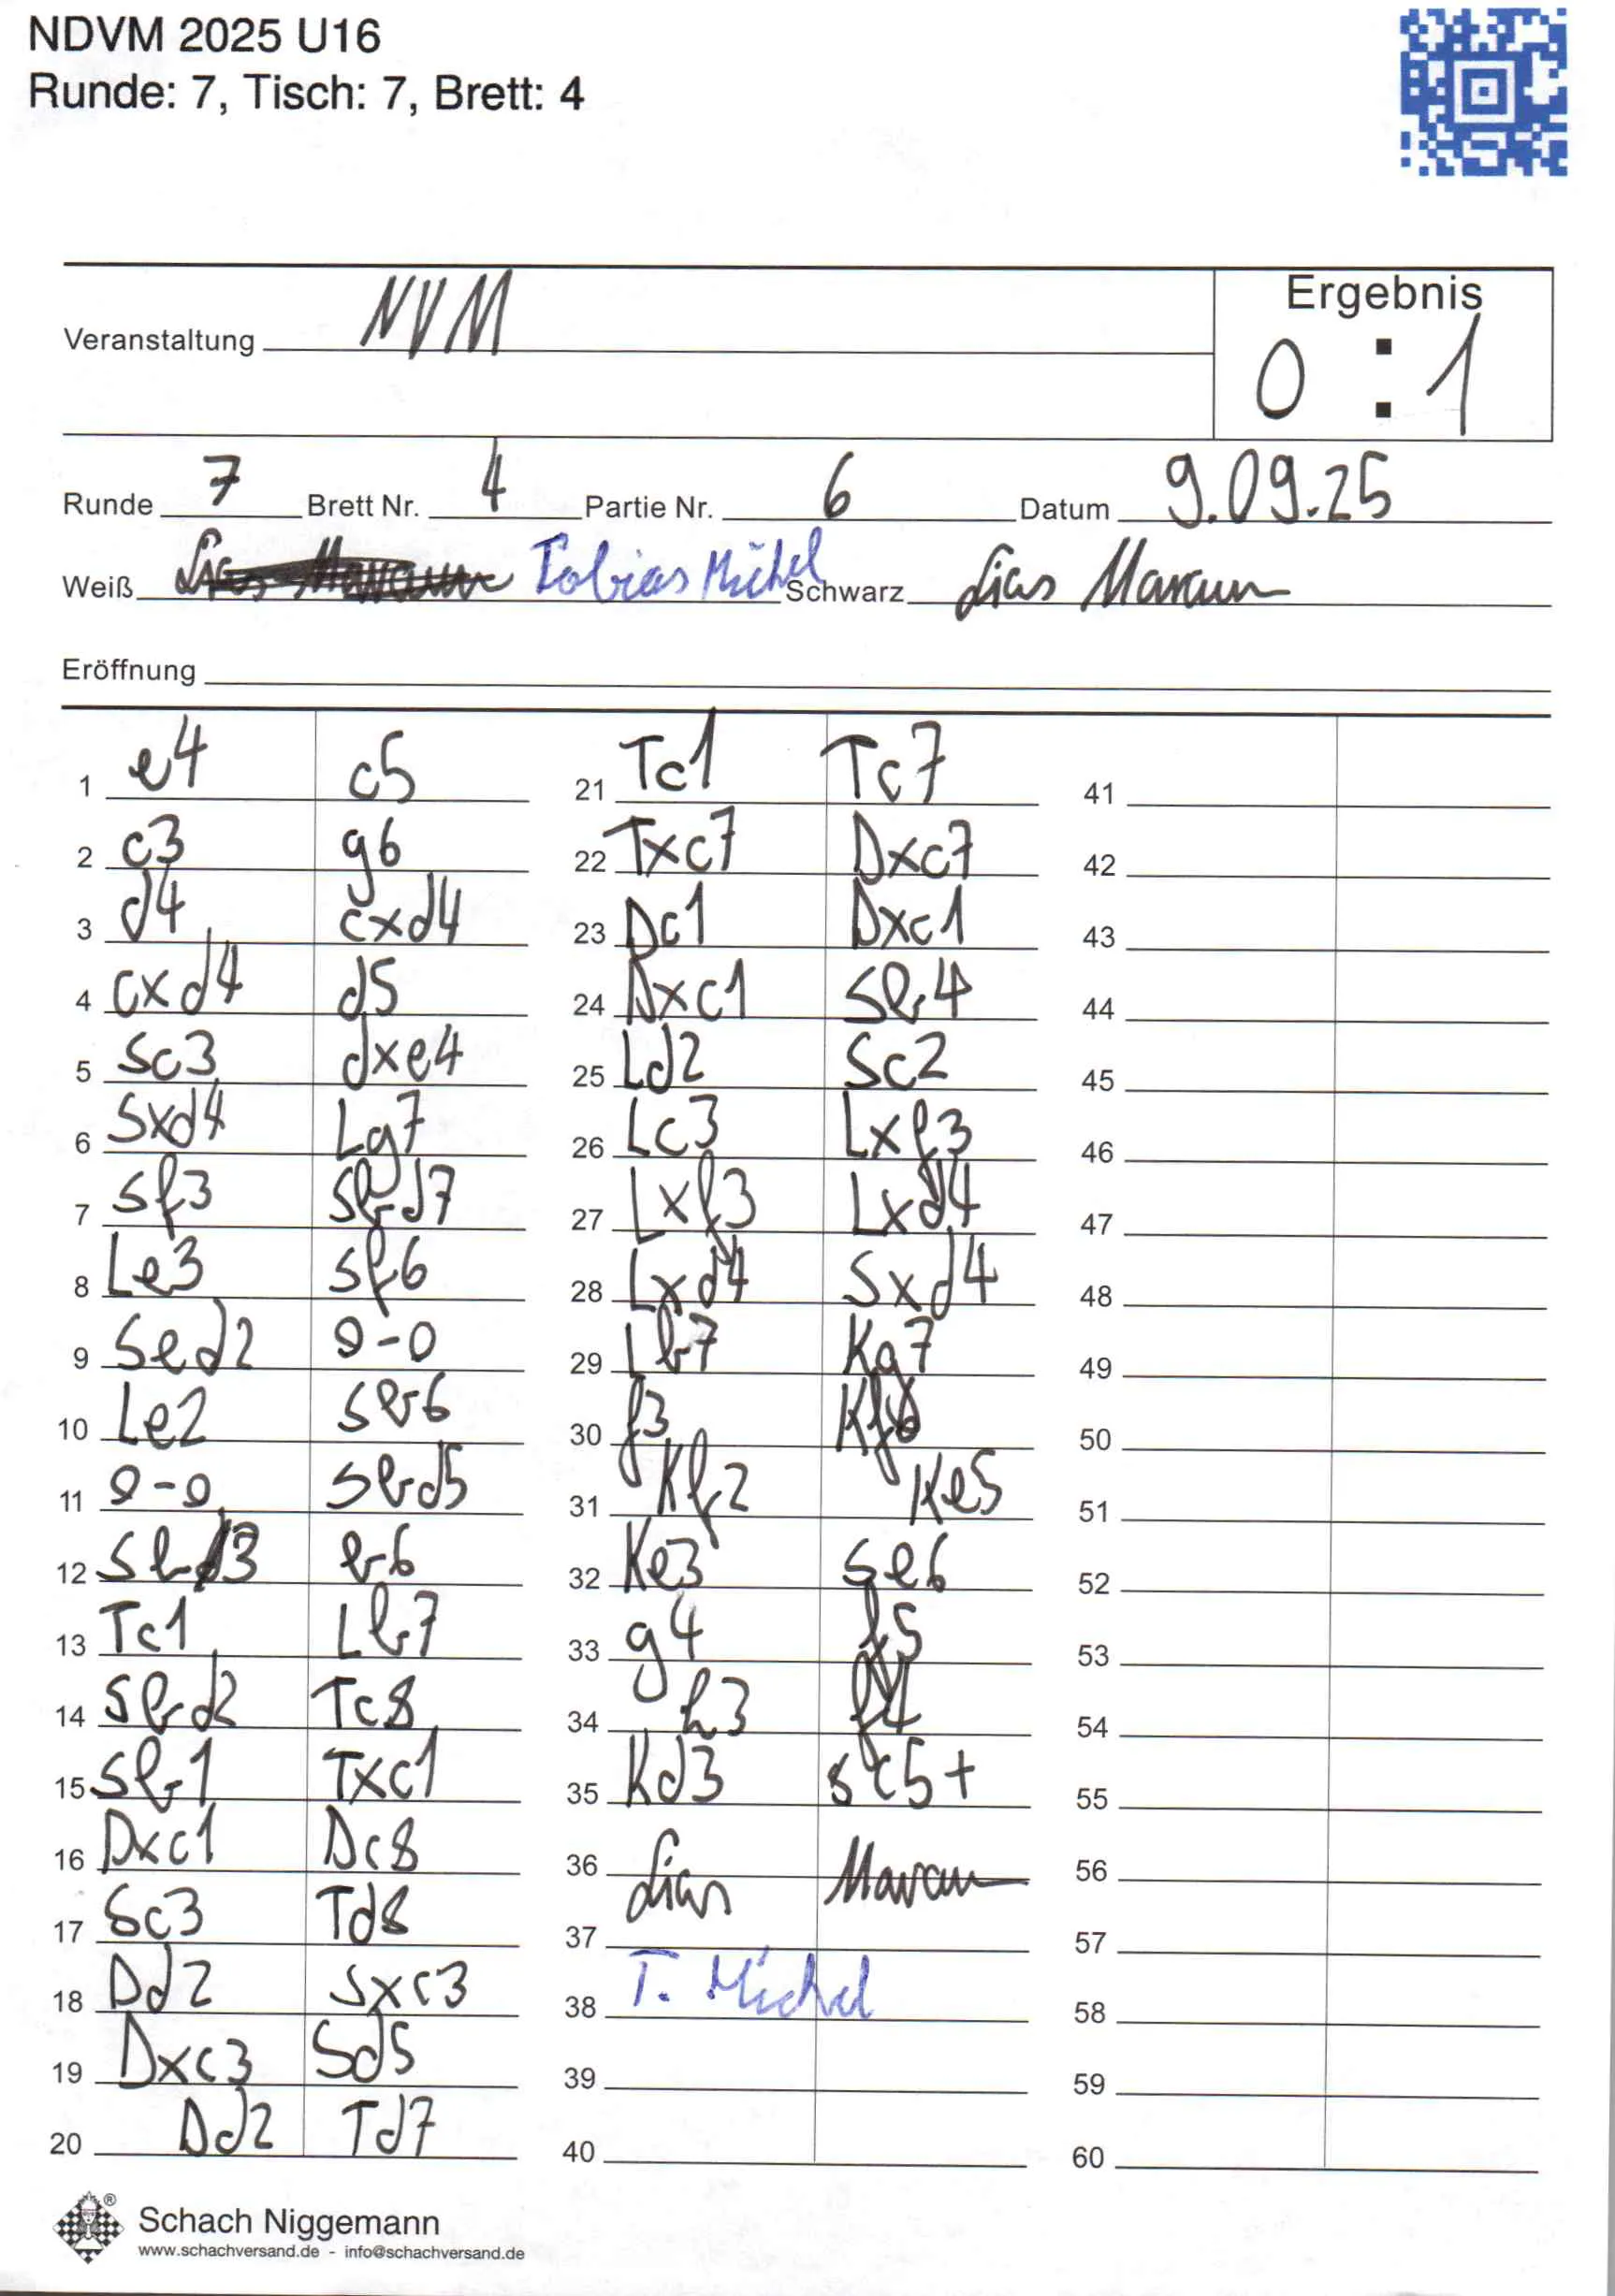 NDVM 2025 U16
Runde: 7, Tisch: 7, Brett: 4
Veranstaltung NVM
Ergebnis
0 : 1
Runde 7 Brett Nr. 4 Partie Nr. 6 Datum 9.09.25
Weiß Tobias Michel Schwarz Lias
Eröffnung
1 e4 c5
2 c3 g6
3 d4 cxd4
4 cxd4 d5
5 Sc3 dxe4
6 Sxd4 Lg7
7 Sf3 Sbd7
8 Le3 Sf6
9 Sed2 0-0
10 Le2 Sb6
11 0-0 Sbd5
12 Sb3 b6
13 Tc1 Lb7
14 Sbd2 Tc8
15 Sb1 Txc1
16 Dxc1 Dc8
17 Sc3 Td8
18 Dd2 Sxc3
19 Dxc3 Sd5
20 Dd2 Td7
21 Tc1 Tc7
22 Txc7 Dxc7
23 Dc1 Dxc1
24 Dxc1 Sb4
25 Ld2 Sc2
26 Lc3 Lxf3
27 Lxf3 Lxd4
28 Lxd4 Sxd4
29 Lb7 Kg7
30 f3 Kf6
31 Kf2 Ke5
32 Ke3 Se6
33 g4 f5
34 h3 f4
35 Kd3 Sc5+
36 Lias
37
38 T. Michel
39
40
41
42
43
44
45
46
47
48
49
50
51
52
53
54
55
56
57
58
59
60
Schach Niggemann
www.schachversand.de - info@schachversand.de